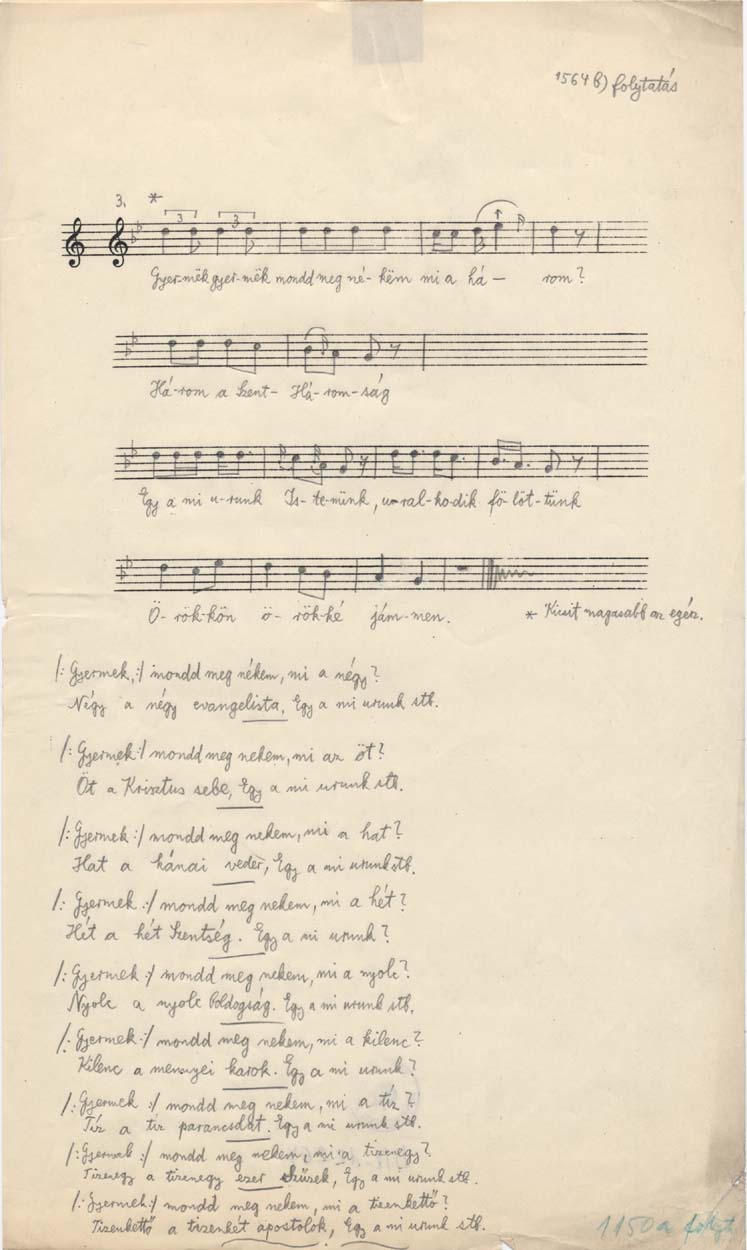 1564 b) folytatás
3. *
3 3
Gyer-mëk gyer-mëk mondd meg né-këm mi a há— rom?
Há-rom a Szent- Há-rom-ság
Egy a mi u-runk Is-te-nünk, u-ral-ko-dik fö-löt-tünk
Ö-rök-kön ö-rök-ké jám-men.
* Kicsit magasabb az egész.
/: Gyermek,:/ mondd meg nékem, mi a négy?
Négy a négy evangelista, Egy a mi urunk stb.
/: Gyermek:/ mondd meg nekem, mi az öt?
Öt a Krisztus sebe, Egy a mi urunk stb.
/: Gyermek:/ mondd meg nekem, mi a hat?
Hat a kánai veder, Egy a mi urunk stb.
/: Gyermek:/ mondd meg nekem, mi a hét?
Hét a hét Szentség. Egy a mi urunk?
/: Gyermek:/ mondd meg nekem, mi a nyolc?
Nyolc a nyolc Boldogság. Egy a mi urunk stb.
/: Gyermek:/ mondd meg nekem, mi a kilenc?
Kilenc a mennyei karok. Egy a mi urunk?
/: Gyermek :/ mondd meg nekem, mi a tíz?
Tíz a tíz parancsolat. Egy a mi urunk stb.
/: Gyermek :/ mondd meg nekem, mi a tizenegy?
Tizenegy a tizenegy ezer Szüzek, Egy a mi urunk stb.
/: Gyermek:/ mondd meg nekem, mi a tizenkettő?
Tizenkettő a tizenkét apostolok, Egy a mi urunk stb.
1150a folyt.